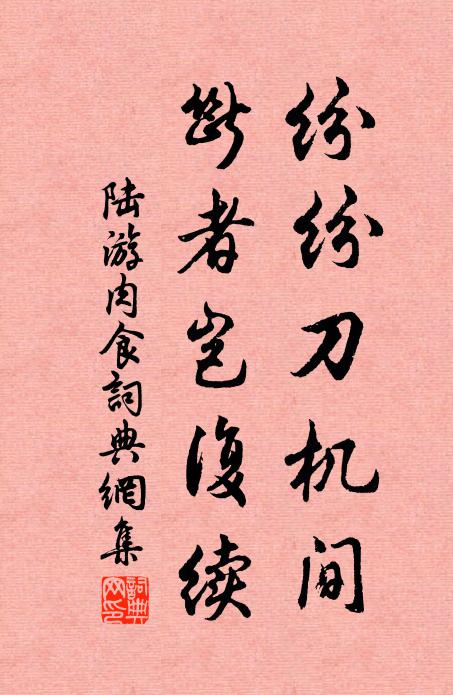 纷纷刀机间
断者岂复续
陆游肉食詞典網集
詞典网印